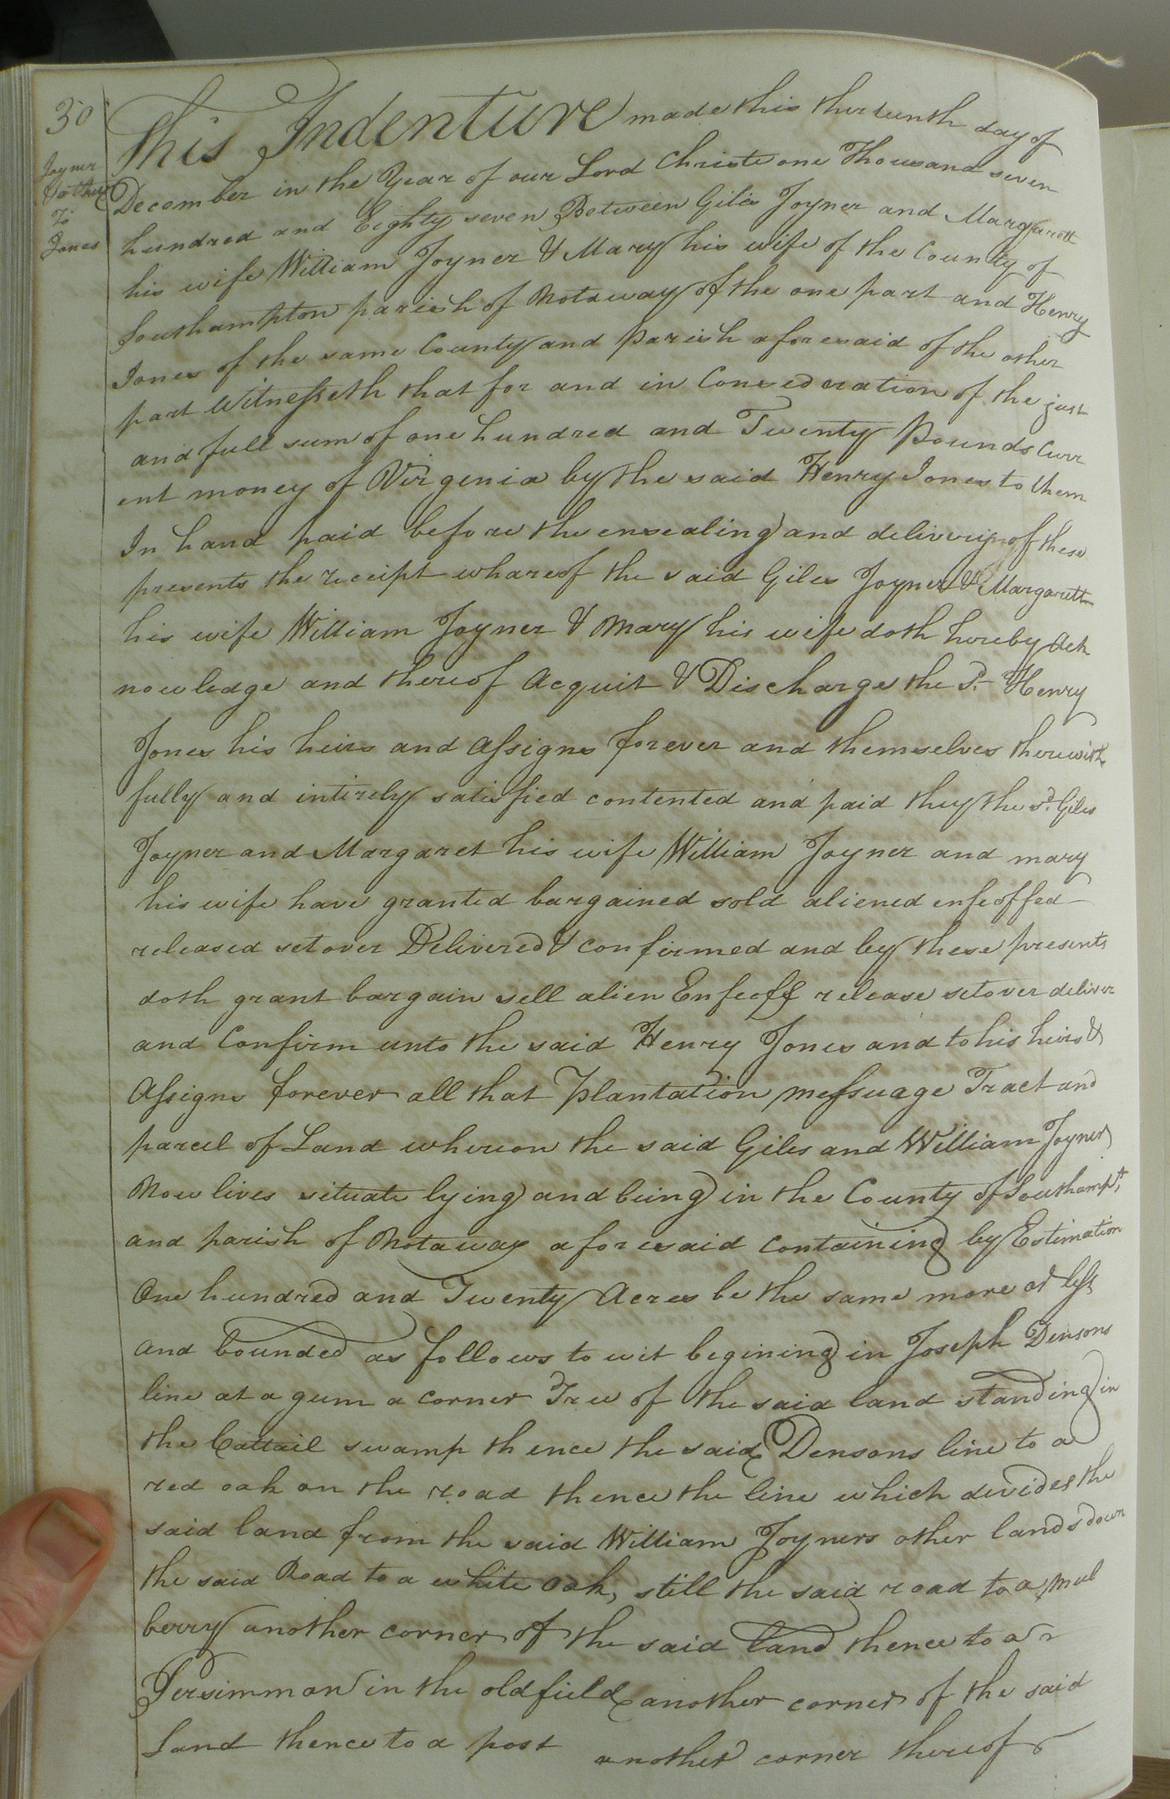 30
Joyner
& others
To
Jones
This Indenture made this thirteenth day of
December in the Year of our Lord Christe one Thousand seven
hundred and Eighty seven Between Giles Joyner and Margarett
his wife William Joyner & Mary his wife of the County of
Southampton parish of Notaway of the one part and Henry
Jones of the same County and parish aforesaid of the other
part Witnesseth that for and in Consederation of the just
and full sum of one hundred and Twenty Pounds Curr
ent money of Virginia by the said Henry Jones to them
In hand paid before the ensealing and delivery of these
presents the receipt whareof the said Giles Joyner & Margarett
his wife William Joyner & Mary his wife doth hereby Ack
nowledge and thereof Acquit & Discharge the Sd. Henry
Jones his heirs and assigns forever and themselves therewith
fully and intirely satisfied contented and paid they the sd. Giles
Joyner and Margaret his wife William Joyner and mary
his wife have granted bargained sold aliened enfeoffed
released setover Delivered & confirmed and by these presents
doth grant bargain sell alien Enfeoff release setover deliver
and Confirm unto the said Henry Jones and to his heirs &
Assigns forever all that Plantation messuage Tract and
parcel of Land whereon the said Giles and William Joyner
Now lives situate lying and being in the County of Southampt.
and parish of Notaway aforesaid containing by Estimation
One hundred and Twenty Acres be the same more or less
and bounded as follows to wit begining in Joseph Densons
line at a gum a corner Tree of the said land standing in
the Cattail swamp thence the said Densons line to a
red oak on the road thence the line which devides the
said land from the said William Joyners other lands down
the said Road to a white oak, still the said road to a mul
berry another corner of the said land thence to a
Persimmon in the oldfield another corner of the said
Land thence to a post another corner thereof